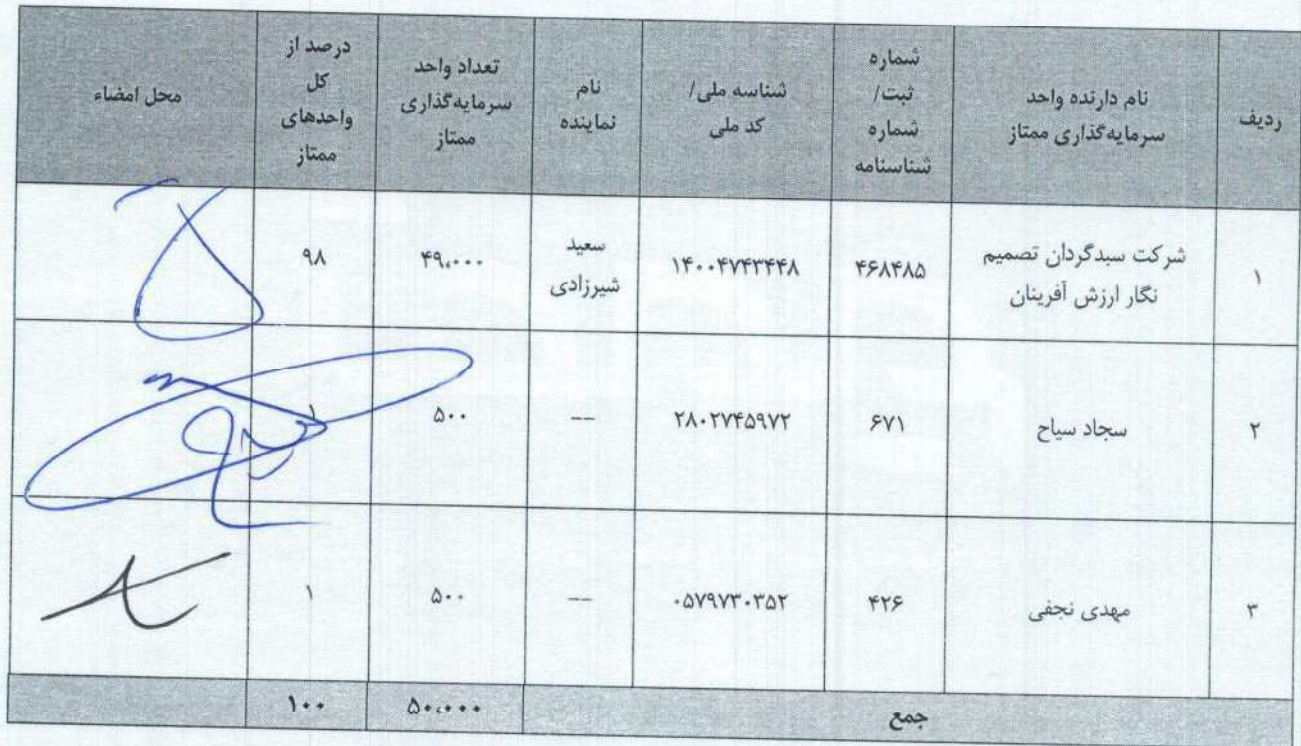 ردیف
نام دارنده واحد
سرمایه‌گذاری ممتاز
شماره
ثبت/
شماره
شناسنامه
شناسه ملی/
کد ملی
نام
نماینده
تعداد واحد
سرمایه‌گذاری
ممتاز
درصد از
کل
واحدهای
ممتاز
محل امضاء
۱
شرکت سبدگردان تصمیم
نگار ارزش آفرینان
۴۶۸۴۸۵
۱۴۰۰۴۷۴۳۴۴۸
سعید
شیرزادی
۴۹،۰۰۰
۹۸
۲
سجاد سیاح
۶۷۱
۲۸۰۲۷۴۵۹۷۲
--
۵۰۰
۱
۳
مهدی نجفی
۴۲۶
۰۵۷۹۷۳۰۳۵۲
--
۵۰۰
۱
جمع
۵۰،۰۰۰
۱۰۰